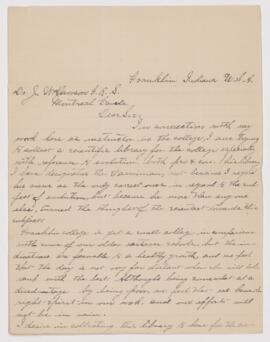 Franklin Indiana U.S.A.
Dr. J. W. Dawson F.R.S.
Montreal Canada
Dear Sir;
In connection with my
work here as instructor in the college, I am trying
to collect a scientific library for the college especially
with reference to evolution both pro & con. This library
I have designated the Darwinian, not because I regard
his views as the only correct ones in regard to the sub-
ject of evolution, but because he more than any one
else, turned the thoughts of the scientist towards this
subject.
Franklin college is yet a small college in comparison
with some of our older eastern schools, but the in-
dications are favorable to a healthy growth, and we feel
that the day is not very far distant when she will
rank with the best. Although being somewhat at a
disadvantage by being poor, we feel that
right spirit in our work and our efforts will
not be in vain.
I desire in collecting this library to have for the